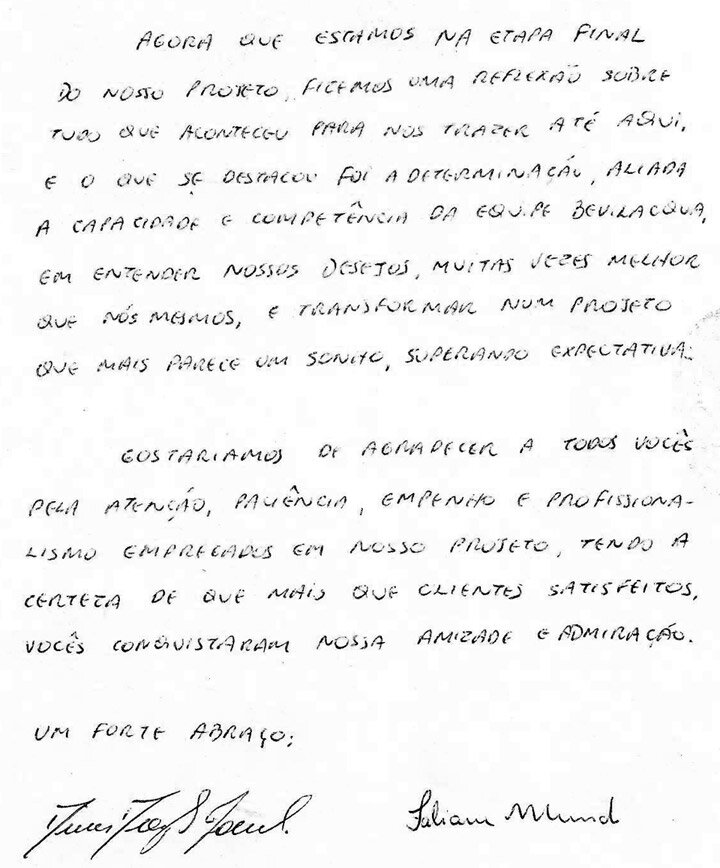 AGORA QUE ESTAMOS NA ETAPA FINAL
DO NOSSO PROJETO, FICEMOS UMA REFLEXÃO SOBRE
TUDO QUE ACONTECEU PARA NOS TRAZER ATÉ AQUI,
E O QUE SE DESTACOU FOI A DETERMINAÇÃO, ALIADA
A CAPACIDADE E COMPETÊNCIA DA EQUIPE BEVILACQUA,
EM ENTENDER NOSSOS DESEJOS, MUITAS VEZES MELHOR
QUE NÓS MESMOS, E TRANSFORMAR NUM PROJETO
QUE MAIS PARECE UM SONHO, SUPERANDO EXPECTATIVA.
GOSTARIAMOS DE AGRADECER A TODOS VOCÊS
PELA ATENÇÃO, PACIÊNCIA, EMPENHO E PROFISSIONA-
LISMO EMPREGADOS EM NOSSO PROJETO, TENDO A
CERTEZA DE QUE MAIS QUE CLIENTES SATISFEITOS,
VOCÊS CONQUISTARAM NOSSA AMIZADE E ADMIRAÇÃO.
UM FORTE ABRAÇO;